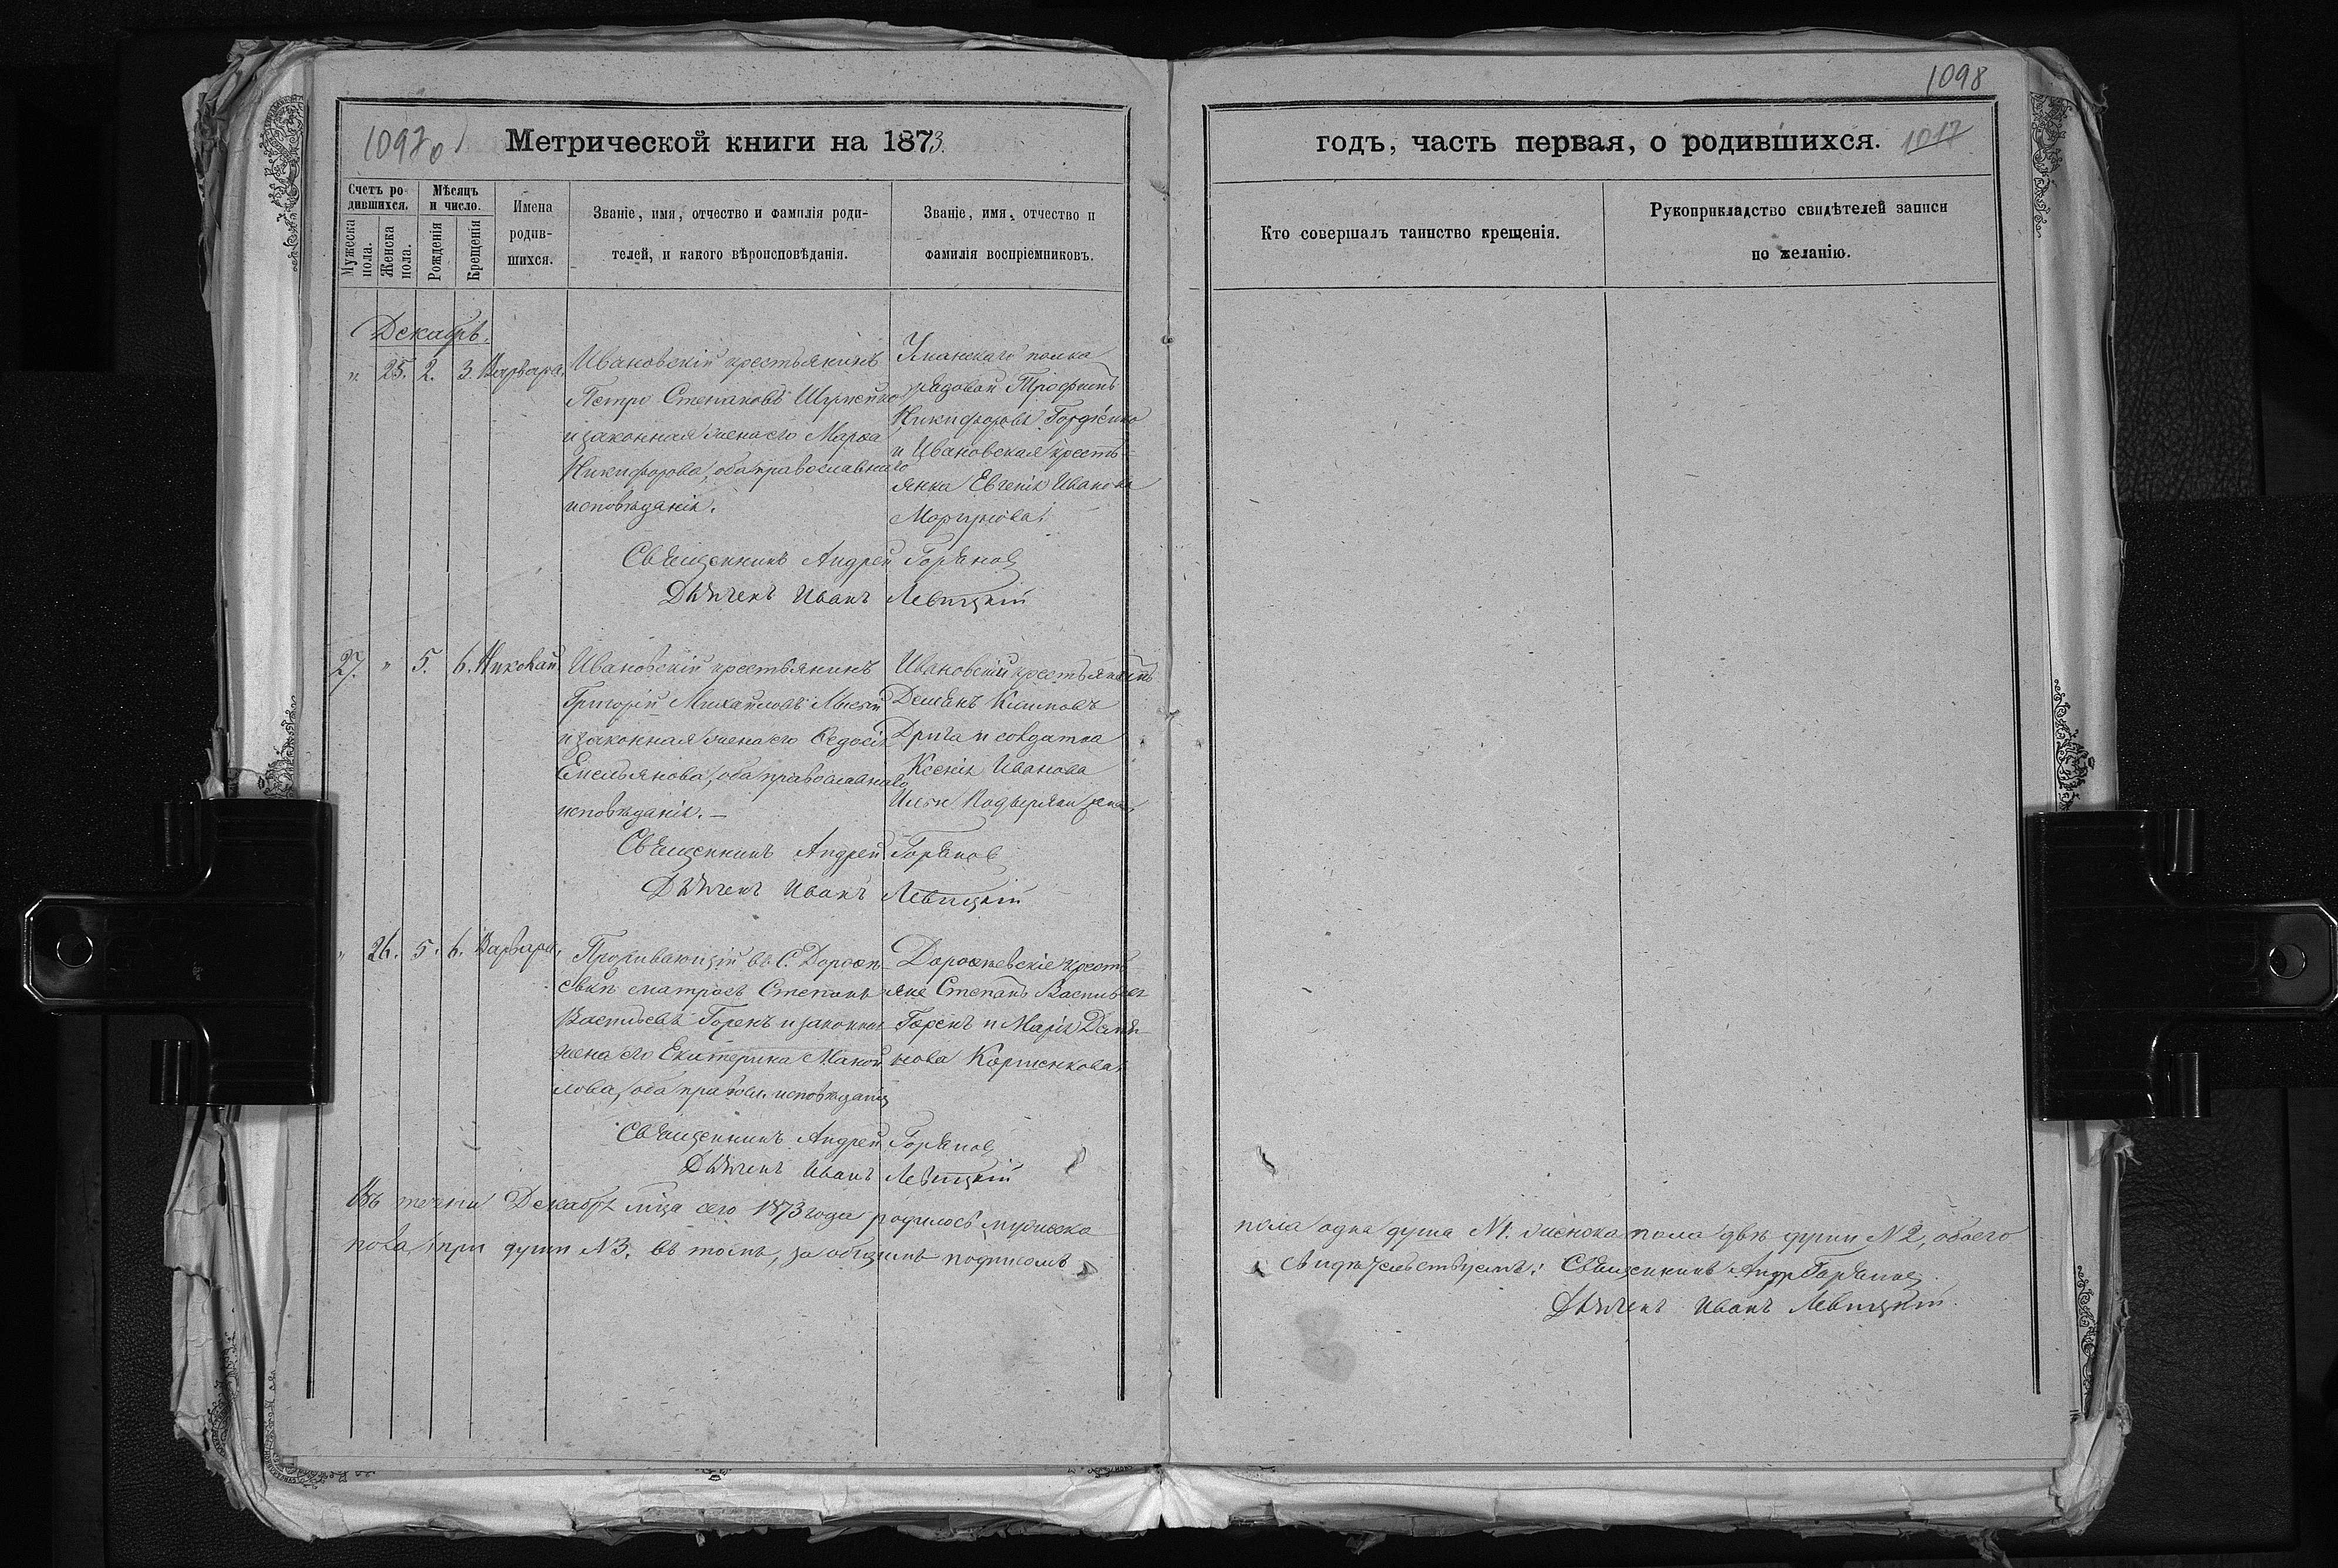 1098
1097об
Метрической книги на 1873.
годъ, часть первая, о родившихся.
1017
Счетъ ро-
дившихся.
Мужеска пола.
Женска пола.
Мѣсяцъ
и число.
Рожденія
Крещенія
Имена
родив-
шихся.
Званіе, имя, отчество и фамилія роди-
телей, и какого вѣроисповѣданія.
Званіе, имя, отчество и
фамилія воспріемниковъ.
Кто совершалъ таинство крещенія.
Рукоприкладство свидѣтелей записи
по желанію.
Декабрь.
" 25. 2. 3. Варвара.
Ивановскій крестьянинъ
Петръ Степановъ
и законная жена его Марфа
Никифорова, оба православнаго
исповѣданія.
Уманскаго полка
рядовой Трофимъ
Никифоровъ Гордіенко
и Ивановская кресть-
янка Евгенія Иванова
Священникъ Андрей Горяновъ
Дьячекъ Иванъ Левицкій
27. " 5. 6. Николай
Ивановскій крестьянинъ
Григорій Михайловъ Лысый
и законная жена его Ѳедосія
Емельянова, оба православнаго
исповѣданія. —
Ивановскій крестьянинъ
Демьянъ Климовъ
Дрига и солдатка
Ксенія Иванова
Священникъ Андрей Горяновъ
Дьячекъ Иванъ Левицкій
" 26. 5. 6. Варвара.
Проживающій въ С. Дорофе-
евкѣ матросъ Степанъ
Васильевъ Горенъ и законная
жена его Екатерина Мануй-
лова, оба правосл. исповѣданія
Дорофеевскіе кресть-
яне Степанъ Васильевъ
Горенъ и Марія Демья-
нова
Священникъ Андрей Горяновъ
Дьячекъ Иванъ Левицкій
Въ теченіи Декабря мѣсца сего 1873 года родилось мужеска
пола одна душа №1. женска пола двѣ души №2, обоего
пола три души №3. въ томъ, за общимъ подписомъ
свидѣтельствуемъ: Священникъ Андр. Горяновъ
Дьячекъ Иванъ Левицкій.